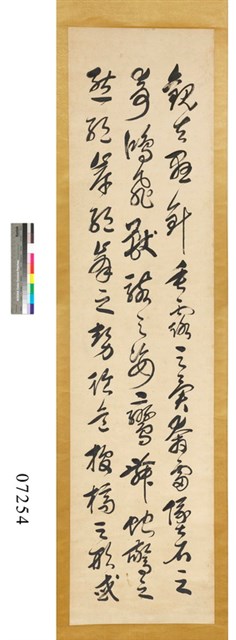 觀夫懸針垂露之異奔雷墜石之
奇鴻飛獸駭之姿鸞舞蛇驚之
態絕岸頹峯之勢臨危據槁之形或
07254